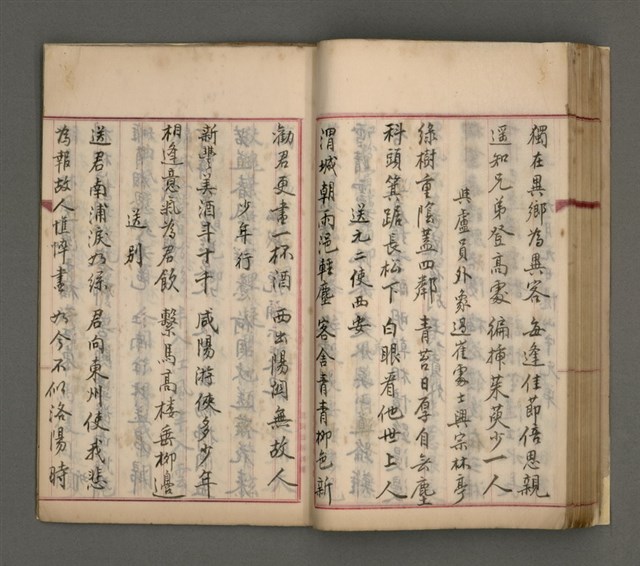 獨在異鄉為異客 每逢佳節倍思親
遥知兄弟登高處 徧揷茱萸少一人
與盧員外象過崔處士興宗林亭
綠樹重陰蓋四鄰 青苔日厚自無塵
科頭箕踞長松下 白眼看他世上人
送元二使西安
渭城朝雨浥輕塵 客舍青青柳色新
勸君更盡一杯酒 西出陽關無故人
少年行
新豐美酒斗十千 咸陽游俠多少年
相逢意氣為君飲 繫馬高楼垂柳邊
送別
送君南浦淚如絲 君向東州使我悲
為報故人憔悴盡 如今不似洛陽時